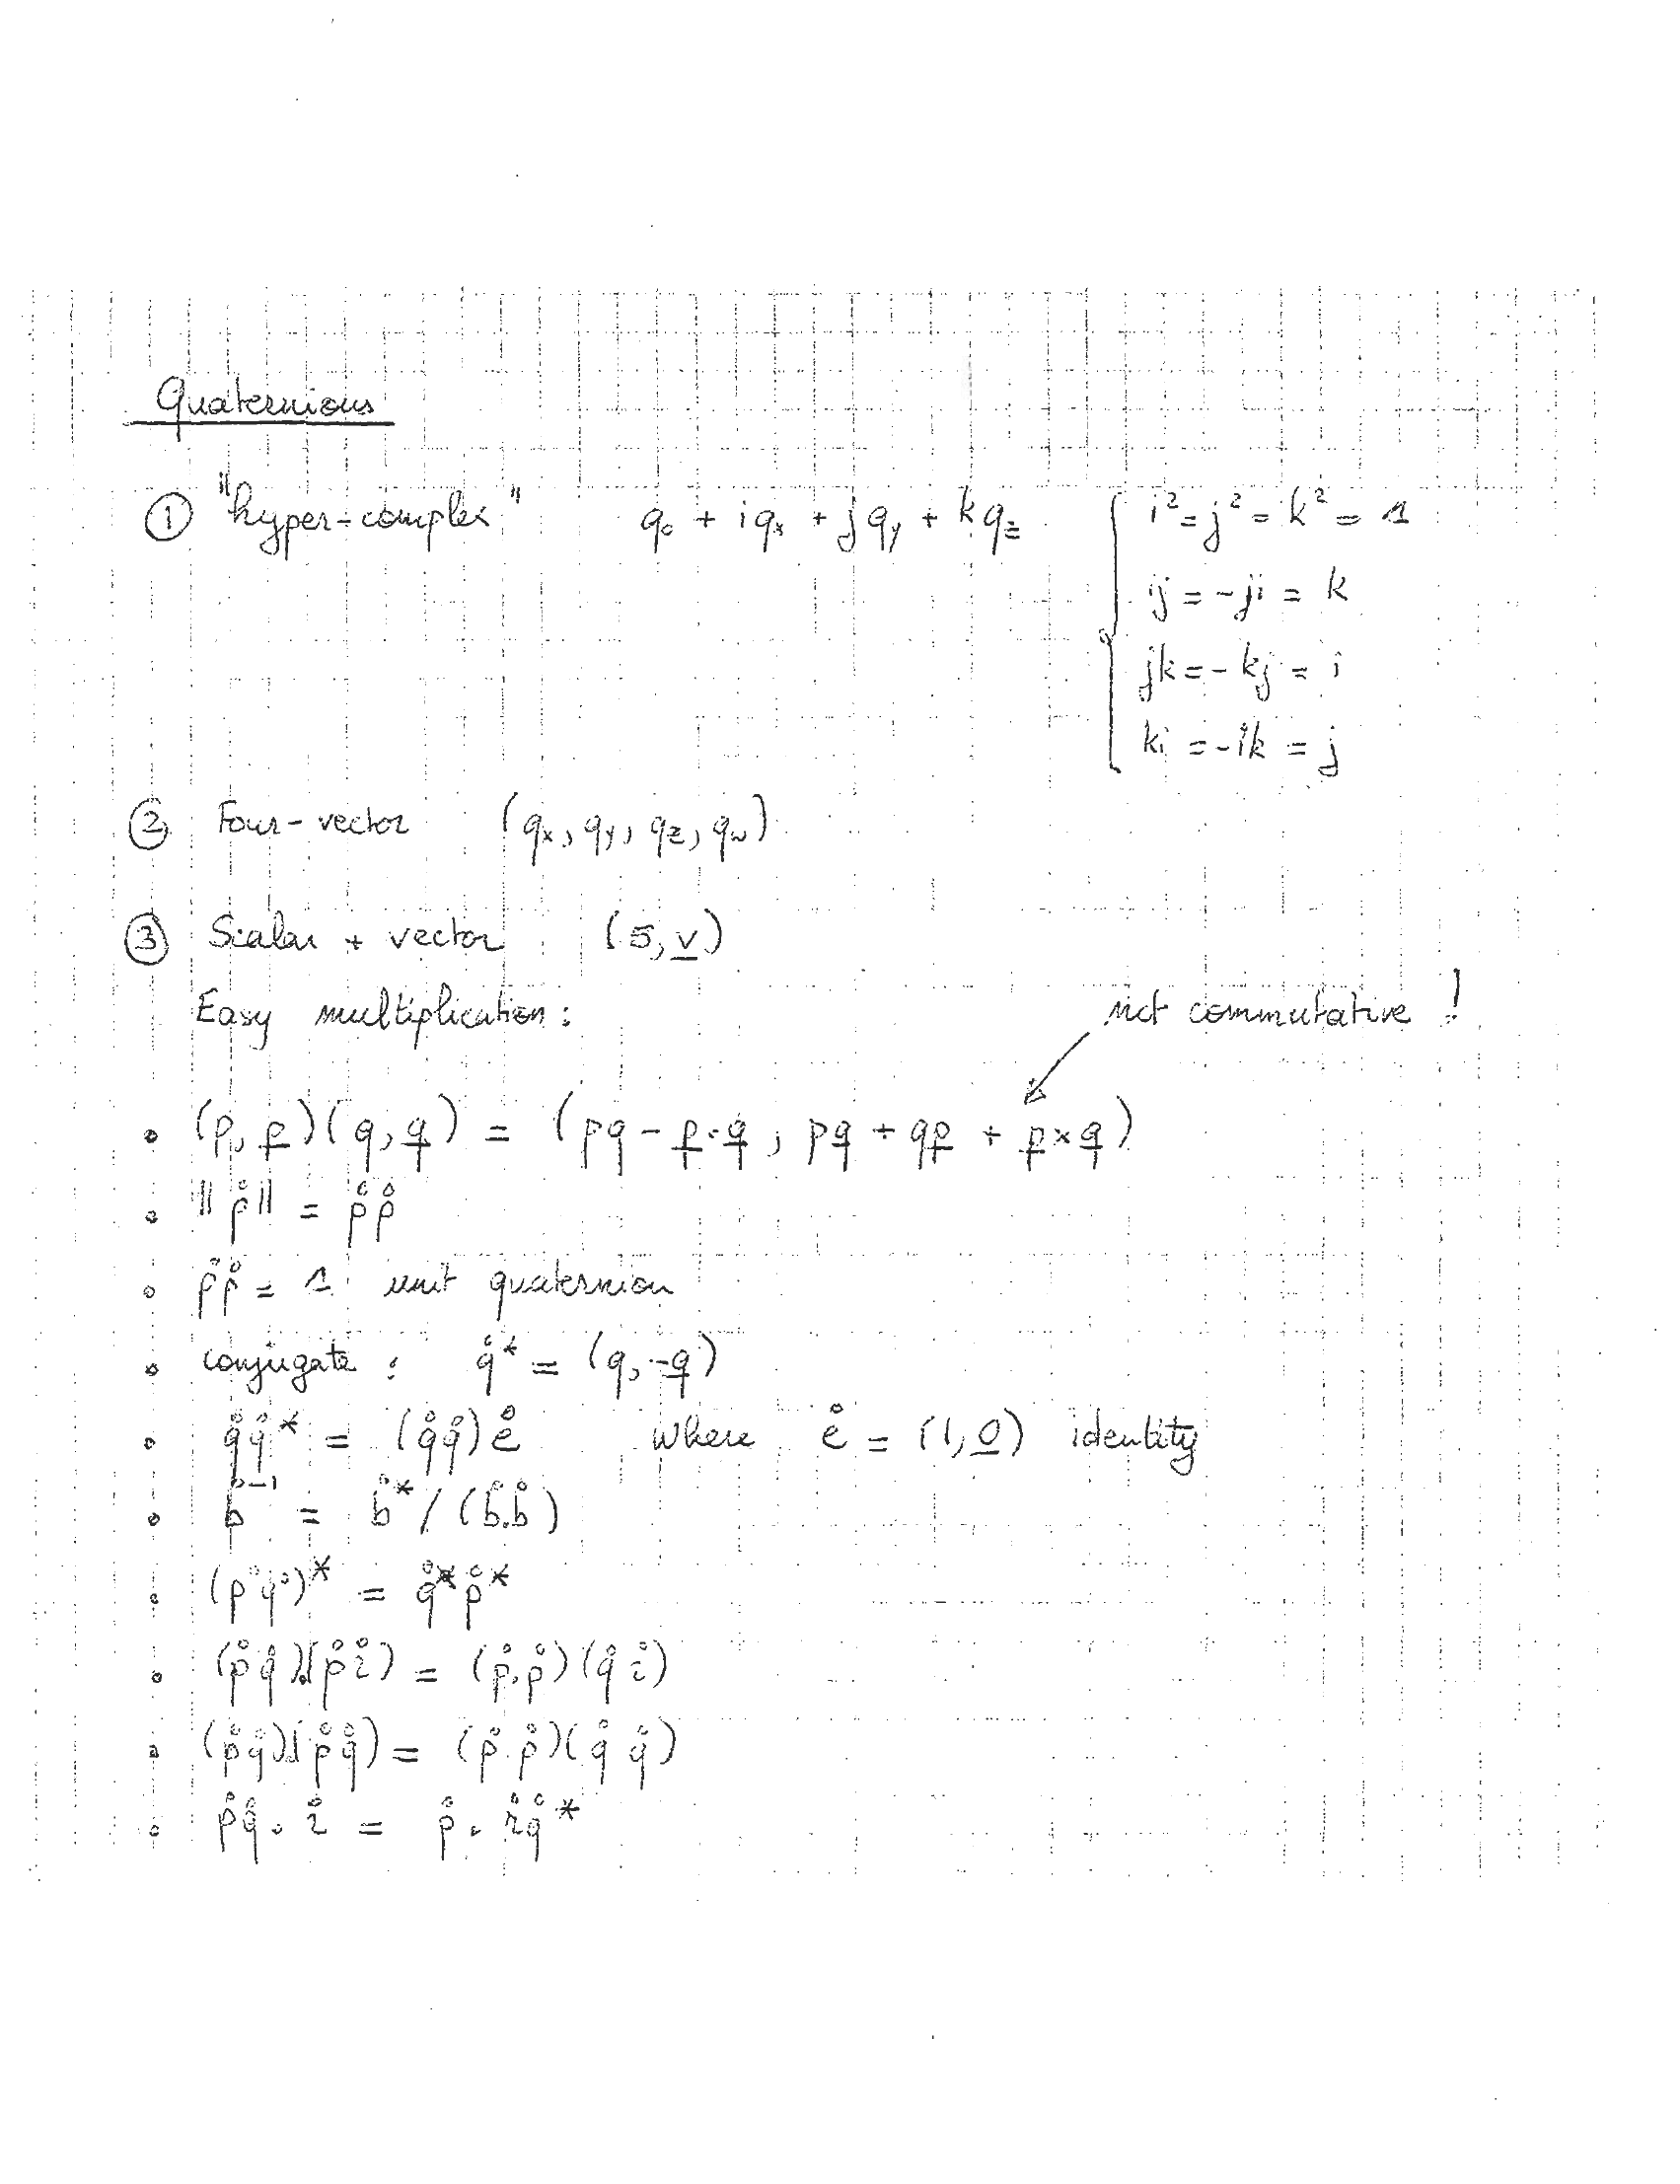 Quaternions
① "hyper-complex" q₀ + iqₓ + jq_y + kq_z { i² = j² = k² = 1
ij = -ji = k
jk = -kj = i
ki = -ik = j
② Four-vector (qₓ, q_y, q_z, q_w)
③ Scalar + vector (s, v̲)
Easy multiplication: not commutative !
• (p, p̲)(q, q̲) = (pq - p̲·q̲, pq̲ + qp̲ + p̲×q̲)
• ‖p̊‖ = p̊p̊
• p̊p̊ = 1 unit quaternion
• conjugate : q̊* = (q, -q̲)
• q̊q̊* = (q̊q̊)e̊ where e̊ = (1, 0̲) identity
• b̊⁻¹ = b̊* / (b̊.b̊)
• (p̊q̊)* = q̊*p̊*
• (p̊q̊).(p̊r̊) = (p̊.p̊)(q̊r̊)
• (p̊q̊).(p̊q̊) = (p̊.p̊)(q̊q̊)
• p̊q̊ . r̊ = p̊ . r̊q̊*